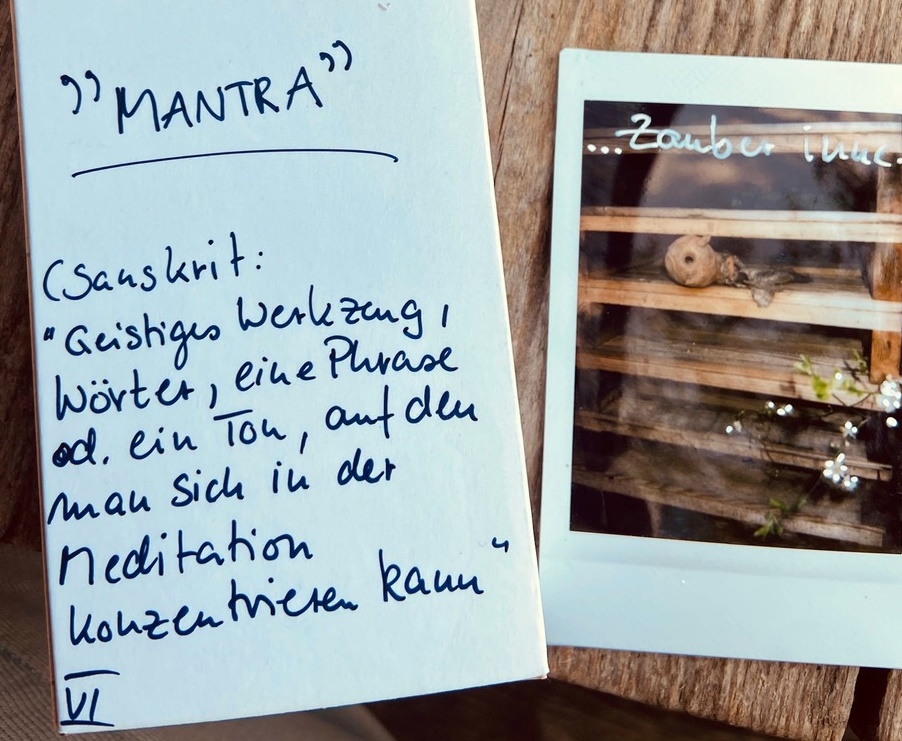 ”MANTRA”
(Sanskrit:
"Geistiges Werkzeug,
Wörter, eine Phrase
od. ein Ton, auf den
man sich in der
Meditation
konzentrieren kann"
VI
...Zauber inne.